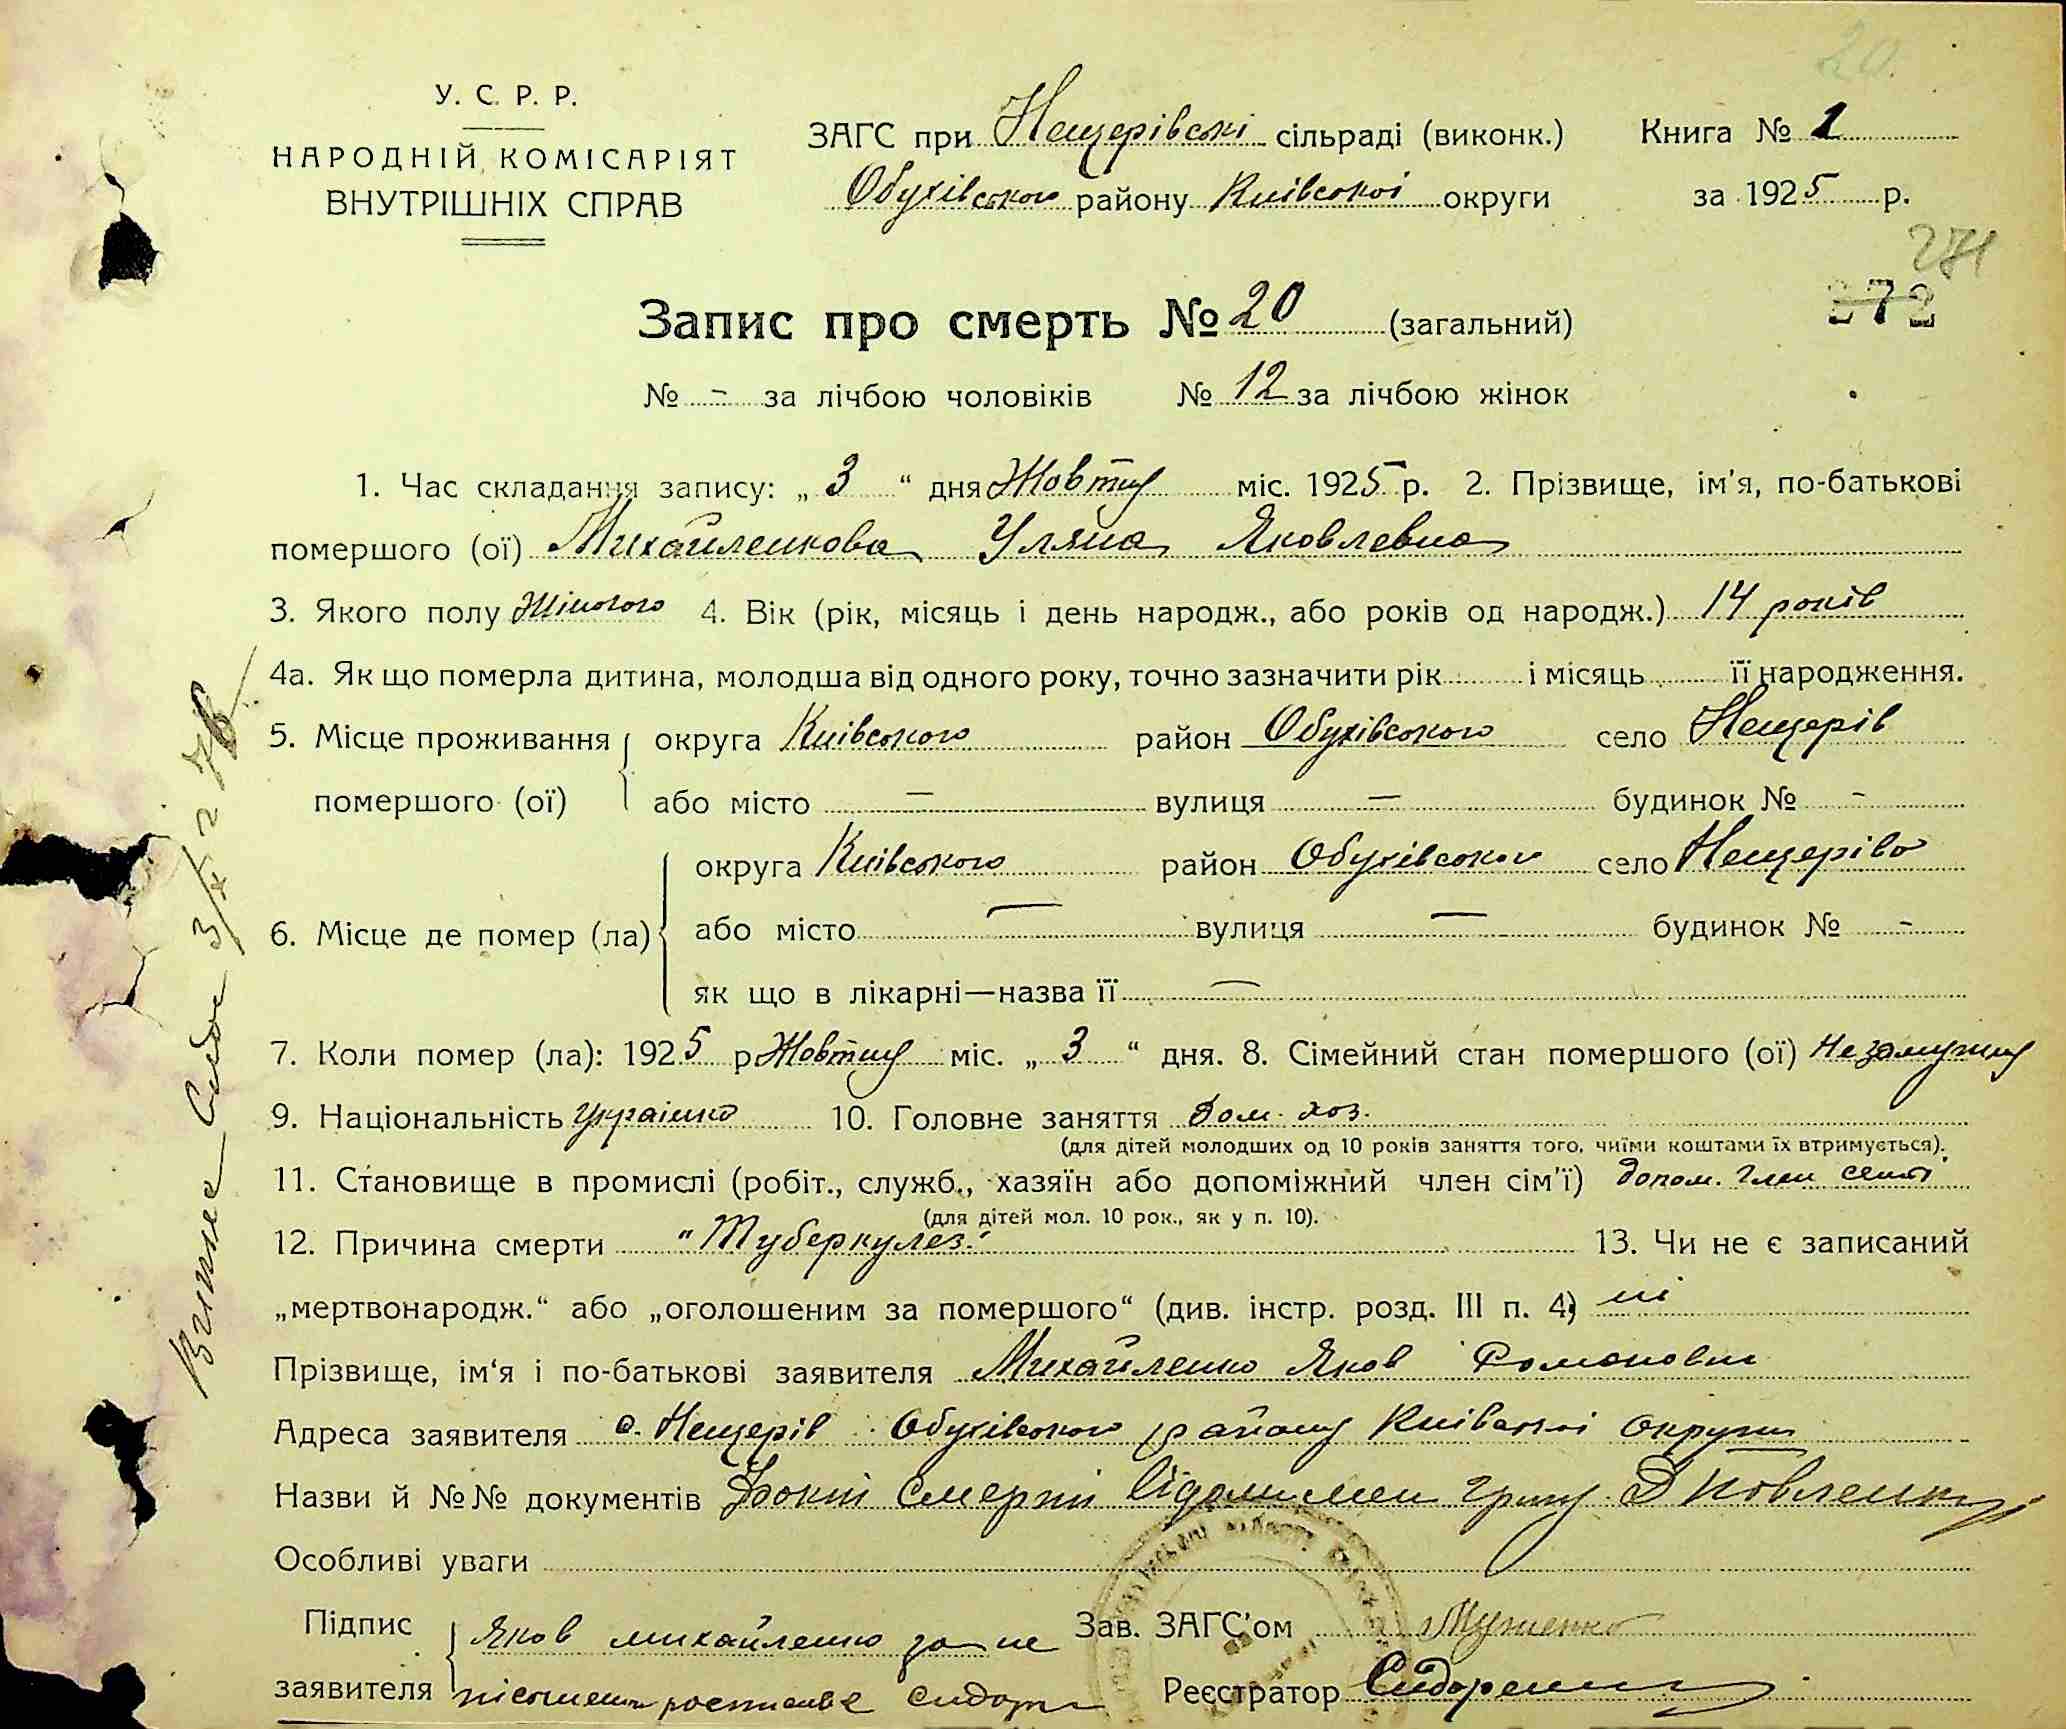 20
У. С. Р. Р.
НАРОДНІЙ КОМІСАРІЯТ
ВНУТРІШНІХ СПРАВ
ЗАГС при Нещерівскі сільраді (виконк.) Книга № 1
Обухівського району Київської округи за 1925 р.
271
272
Запис про смерть № 20 (загальний)
№ - за лічбою чоловіків № 12 за лічбою жінок
1. Час складання запису: „ 3 “ дня Жовтня міс. 1925 р. 2. Прізвище, ім'я, по-батькові
помершого (ої) Михайленкова Уляна Яковлевна
3. Якого полу Жіночого 4. Вік (рік, місяць і день народж., або років од народж.) 14 років
4а. Як що померла дитина, молодша від одного року, точно зазначити рік і місяць її народження.
5. Місце проживання округа Київського район Обухівського село Нещерів
помершого (ої) або місто — вулиця — будинок № -
округа Київського район Обухівського село Нещерів
6. Місце де помер (ла) або місто — вулиця — будинок № -
як що в лікарні—назва її —
7. Коли помер (ла): 1925 р Жовтня міс. „ 3 “ дня. 8. Сімейний стан помершого (ої) Незамужня
9. Національність Українка 10. Головне заняття дом. хоз.
(для дітей молодших од 10 років заняття того, чиїми коштами їх втримується).
11. Становище в промислі (робіт., служб., хазяїн або допоміжний член сім'ї) допом. член семї
(для дітей мол. 10 рок., як у п. 10).
12. Причина смерти "Туберкулез." 13. Чи не є записаний
„мертвонародж.“ або „оголошеним за помершого“ (див. інстр. розд. III п. 4) ні
Прізвище, ім'я і по-батькові заявителя Михайленко Яков Романович
Адреса заявителя с. Нещерів Обухівського району Київської округи
Назви й №№ документів смерти
Особливі уваги
Підпис Яков Михайленко за не Зав. ЗАГС'ом
заявителя Реєстратор Сидоренко